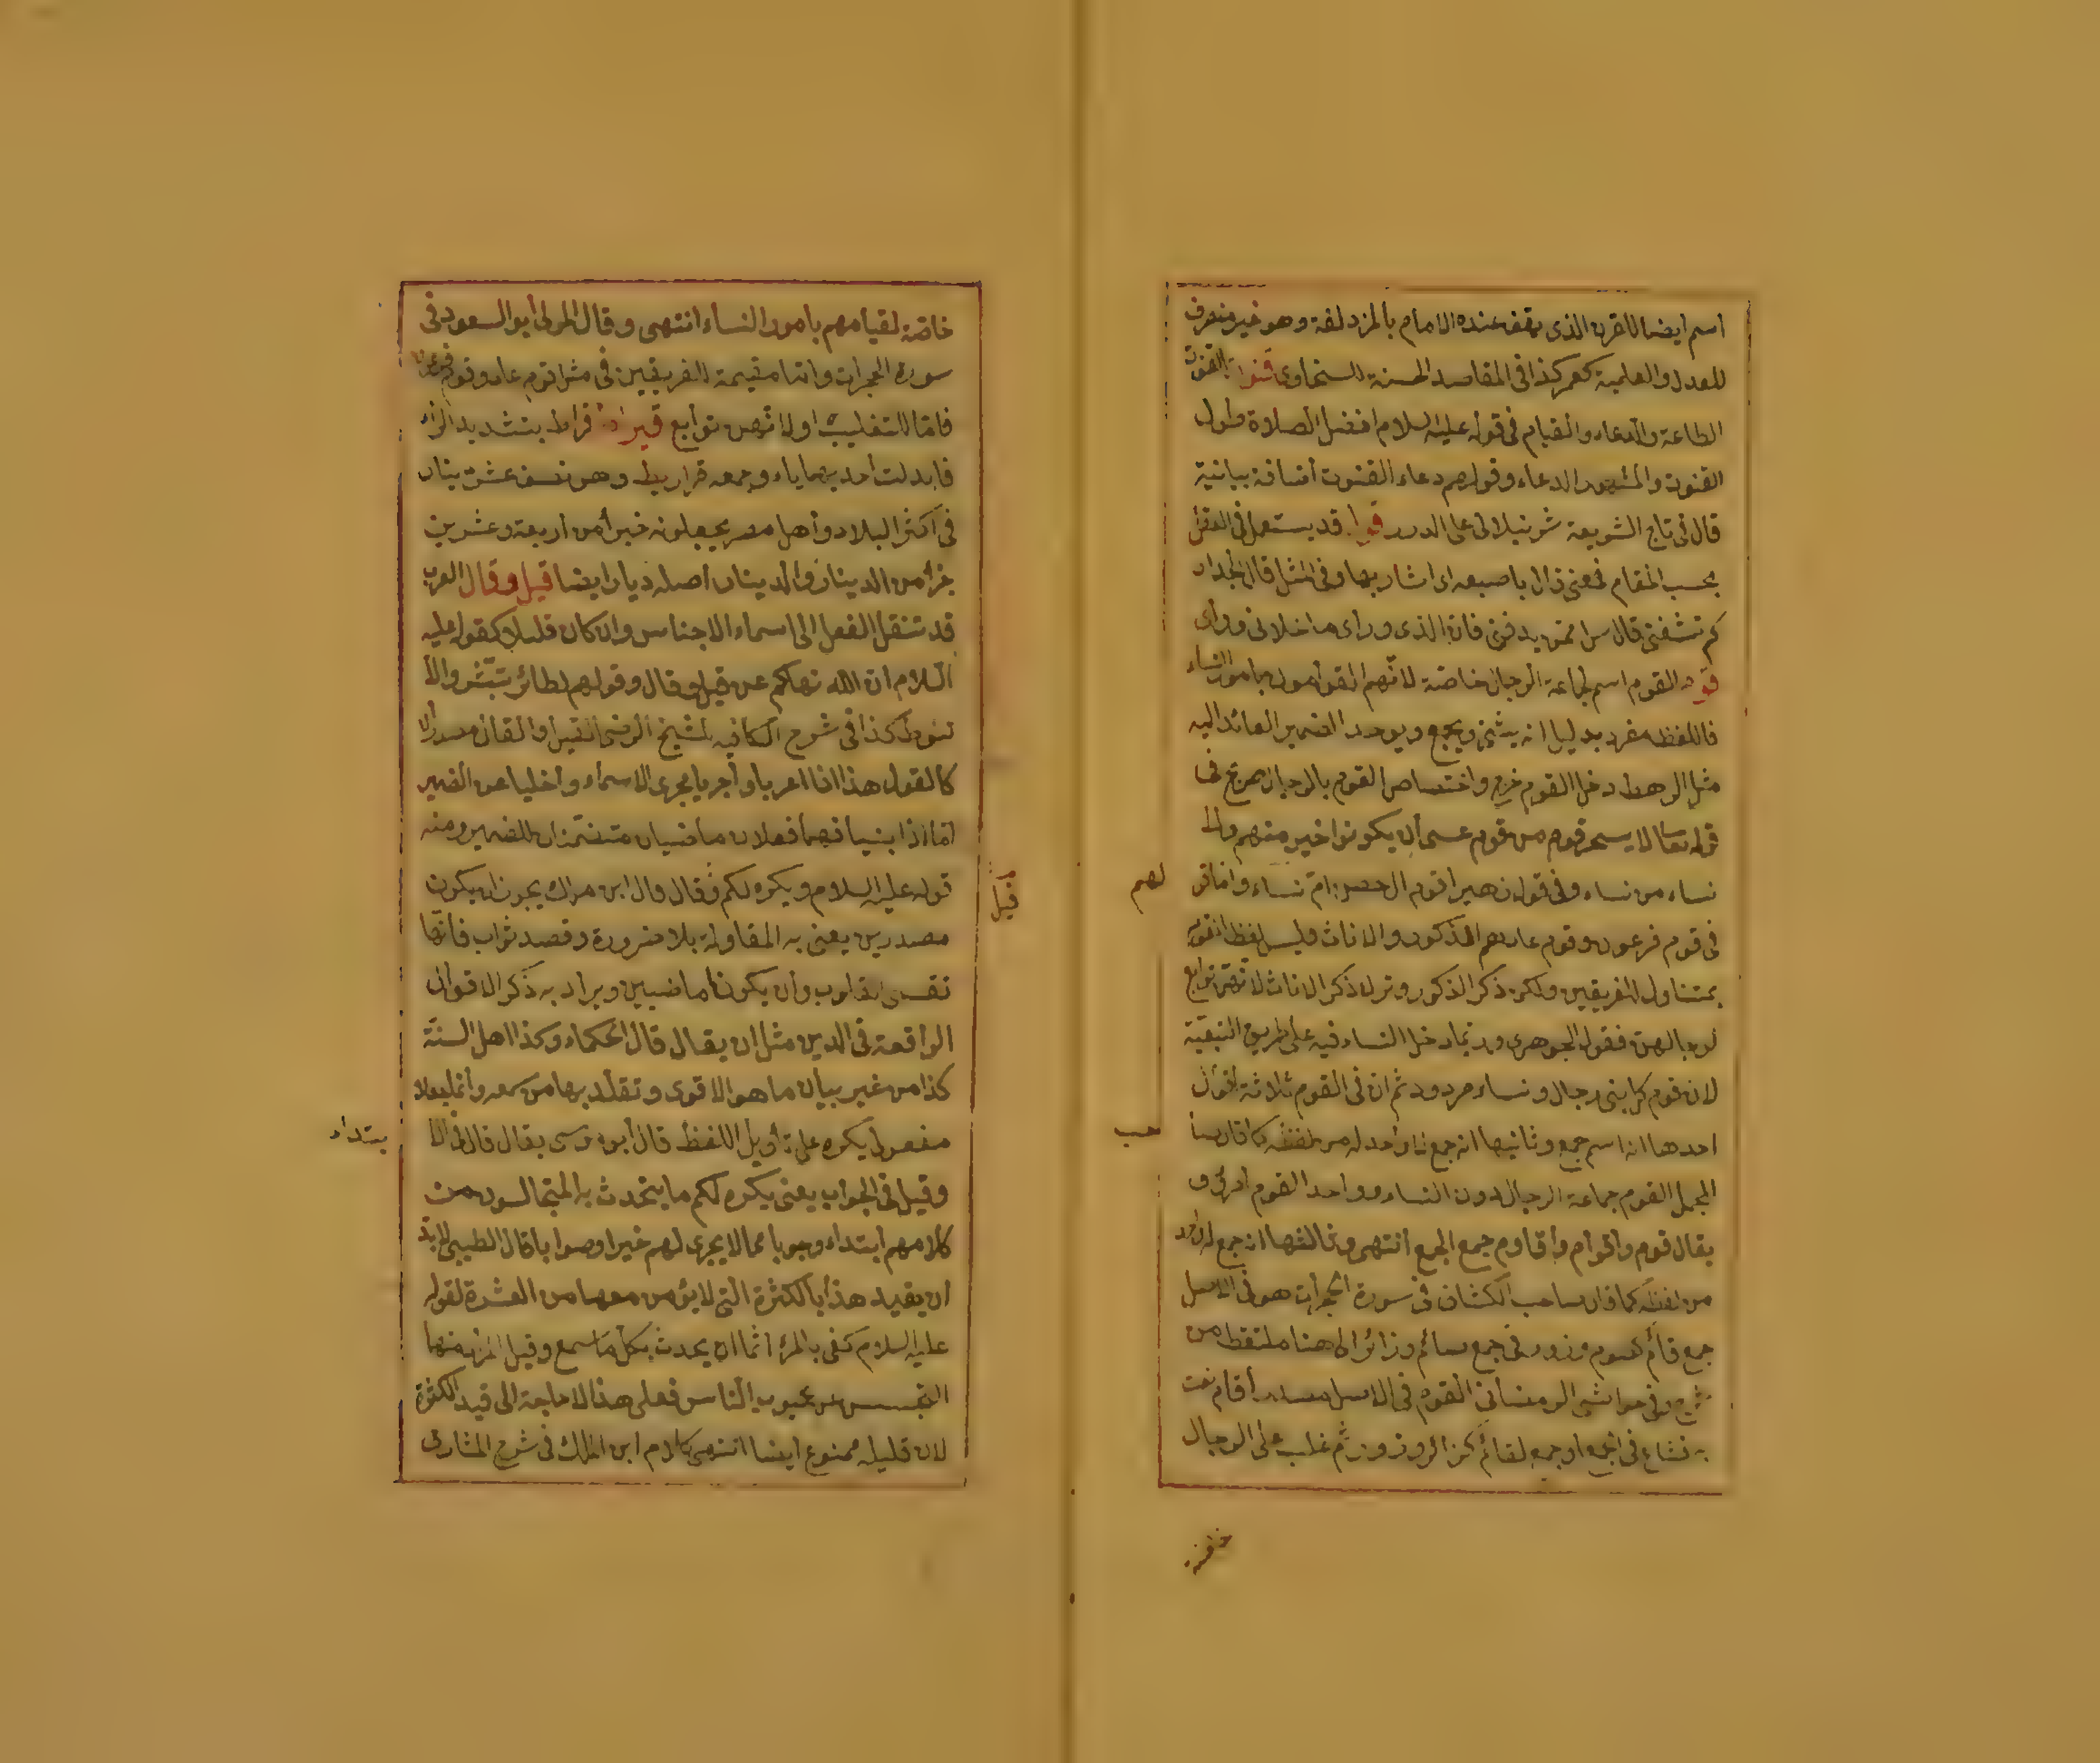 اسم ايضا للقرن الذى يقف عنده الامام بالمزدلفة وهو غير منصرف
للعدل والعلمية كعمر كذا فى المقاصد الحسنة للسخاوى قنوت القنوت
الطاعة والدعاء والقيام فى قوله عليه السلام افضل الصلاة طول
القنوت والمشهور الدعاء وقولهم دعاء القنوت اضافة بيانية
قال فى تاج الشريعة شرنبلالى على الدرر قول قد يستعمل فى
بحسب المقام فمعنى قال باصبعه اى اشار بها وفى المثل قال الجدار
لم تشقنى قال سل من يدقنى فان الذى ورائى ما خلانى ورائى
قوم القوم اسم لجماعة الرجال خاصة لانهم القوامون بامور النساء
فاللفظ مفرد بدليل انه يثنى ويجمع ويوحد الضمير العائد اليه
مثل الرهط دخل القوم خرج واختصاص القوم بالرجال صريح فى
قوله تعالى لا يسخر قوم من قوم عسى ان يكونوا خيرا منهم ولا
نساء من نساء وفى قول زهير اقوم ال حصن ام نساء واما قو
لهم
فى قوم فرعون وقوم عاد هم الذكور والاناث فليس لفظ القوم
بمتناول للفريقين ولكن ذكر الذكور وترك ذكر الاناث لانهن توابع
لرجالهن فقول الجوهرى وربما دخل النساء فيه على طريق التبعية
لان قوم كل نبى رجال ونساء مردود ثم ان فى القوم ثلاثة اقوال
احدها انه اسم جمع وثانيها انه جمع لا واحد له من لفظه كما قال صا
حب
المجمل القوم جماعة الرجال دون النساء وواحد القوم امرئ و
يقال قوم واقوام واقاوم جمع الجمع انتهى وثالثها ان جمع له واحد
من لفظه كما قال صاحب الكشاف فى سورة الحجرات هو فى الاصل
جمع قائم كصوم وزور فى جمع صائم وزائر الى هنا ملتقط من
شرح وفى حواشى الرمضانى القوم فى الاصل مصدر اقام نعت
به فشاع فى الجمع او جمع لقائم كزائر وزور ثم غلب على الرجال
خاصة
خاصة لقيامهم بامور النساء انتهى وقال المولى ابو السعود فى
سورة الحجرات واما تعميمه للفريقين فى مثل قوم عاد وقوم فرعون
فاما للتغليب او لانهن توابع قيراط قراط بتشديد الراء
فابدلت احديهما ياء وجمعه قراريط وهو نصف عشر دينار
فى اكثر البلاد واهل مصر يجعلونه خيرا من اربعة وعشرين
جزأ من الدينار والدينار اصله دنار ايضا قيل وقال العرب
قد تنقل الفعل الى اسماء الاجناس وان كان قليلا كقوله عليه
السلام ان الله نهاكم عن قيل وقال وقولهم لطائر تبشر وال
تنوط كذا فى شرح الكافيه للشيخ الرضى القيل والقال مصدران
كالقول هذا اذا اعربا واجريا مجرى الاسماء واخليا عن الضمير
اما اذا بنيا فهما فعلان ماضيان متضمنان للضمير ومنه
قوله عليه السلام ويكره لكم قال وقال ابن ملك يجوز ان يكون
قيل
مصدرين يعنى به المقاولة بلا ضرورة وقصد ثواب فانها
تقسى القلوب وان يكونا ماضيين ويراد به ذكر الاقوال
الواقعة فى الدين مثل ان يقال قال الحكماء وكذا اهل السنة
كذا من غير بيان ما هو الاقوى وتقلد بها من سمعه وانما يولا
مفعول يكره على تأويل اللفظ قال ابو موسى يقال قال فى الا
بتداء
وقيل فى الجواب يعنى يكره لكم ما يتحدث به المتجالسون من
كلامهم ابتداء وجوابا مما لا يجرى لهم خيرا وصوابا قال الطيبى لا بد
ان يقيد هذا بالكثرة التى لا يؤمن معها من العشرة لقوله
عليه السلام كفى بالمرء اثما ان يحدث بكل ما سمع وقيل المراد منها
التجسس عن عيوب الناس فعلى هذا لا حاجة الى قيد الكثرة
لان قليله ممنوع ايضا انتهى كلام ابن الملك فى شرح المشارق